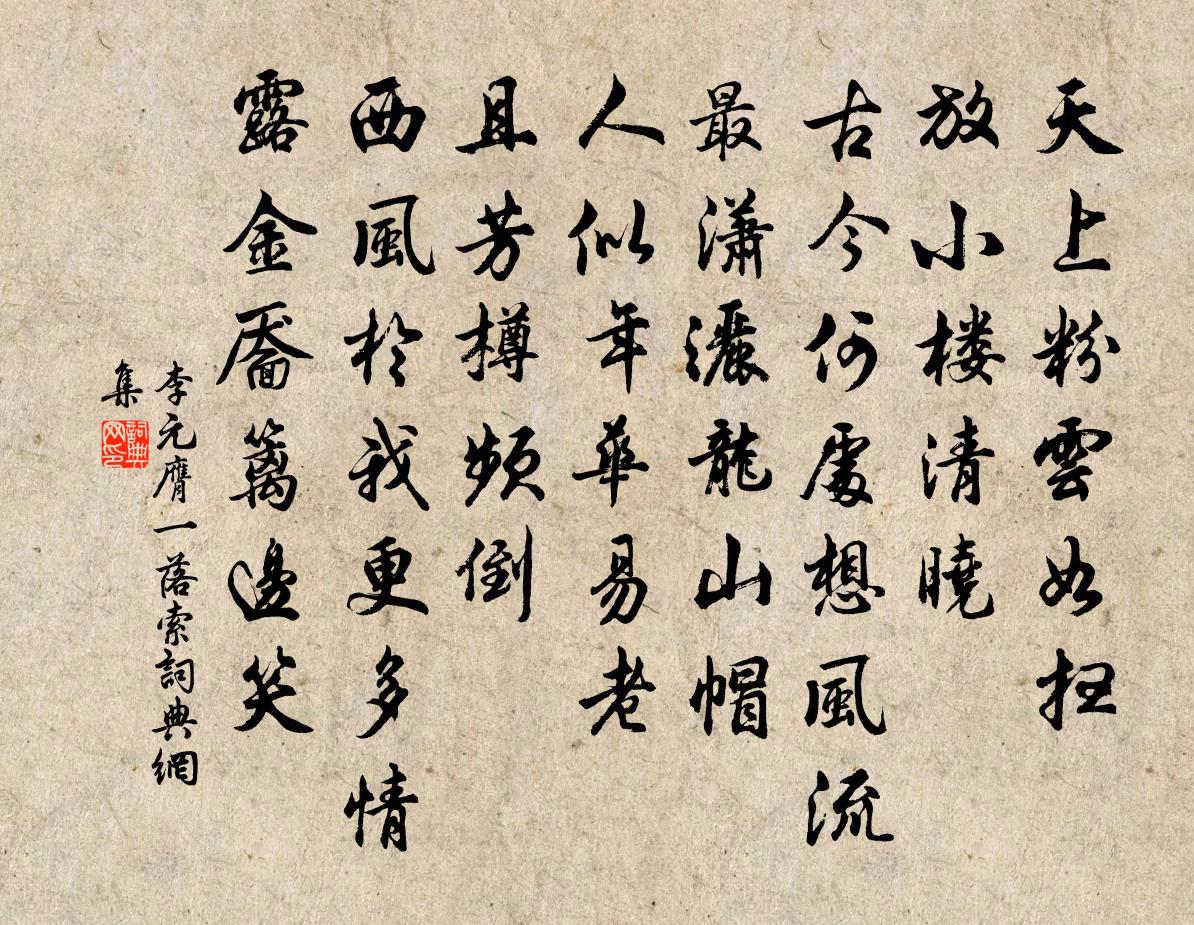 天上粉雲如扫
放小楼清曉
古今何處想風流
最潇灑龍山帽
人似年華易老
且芳樽頻倒
西風於我更多情
露金靨篱邊笑
李元膺一落索詞典網
集
詞典
网印